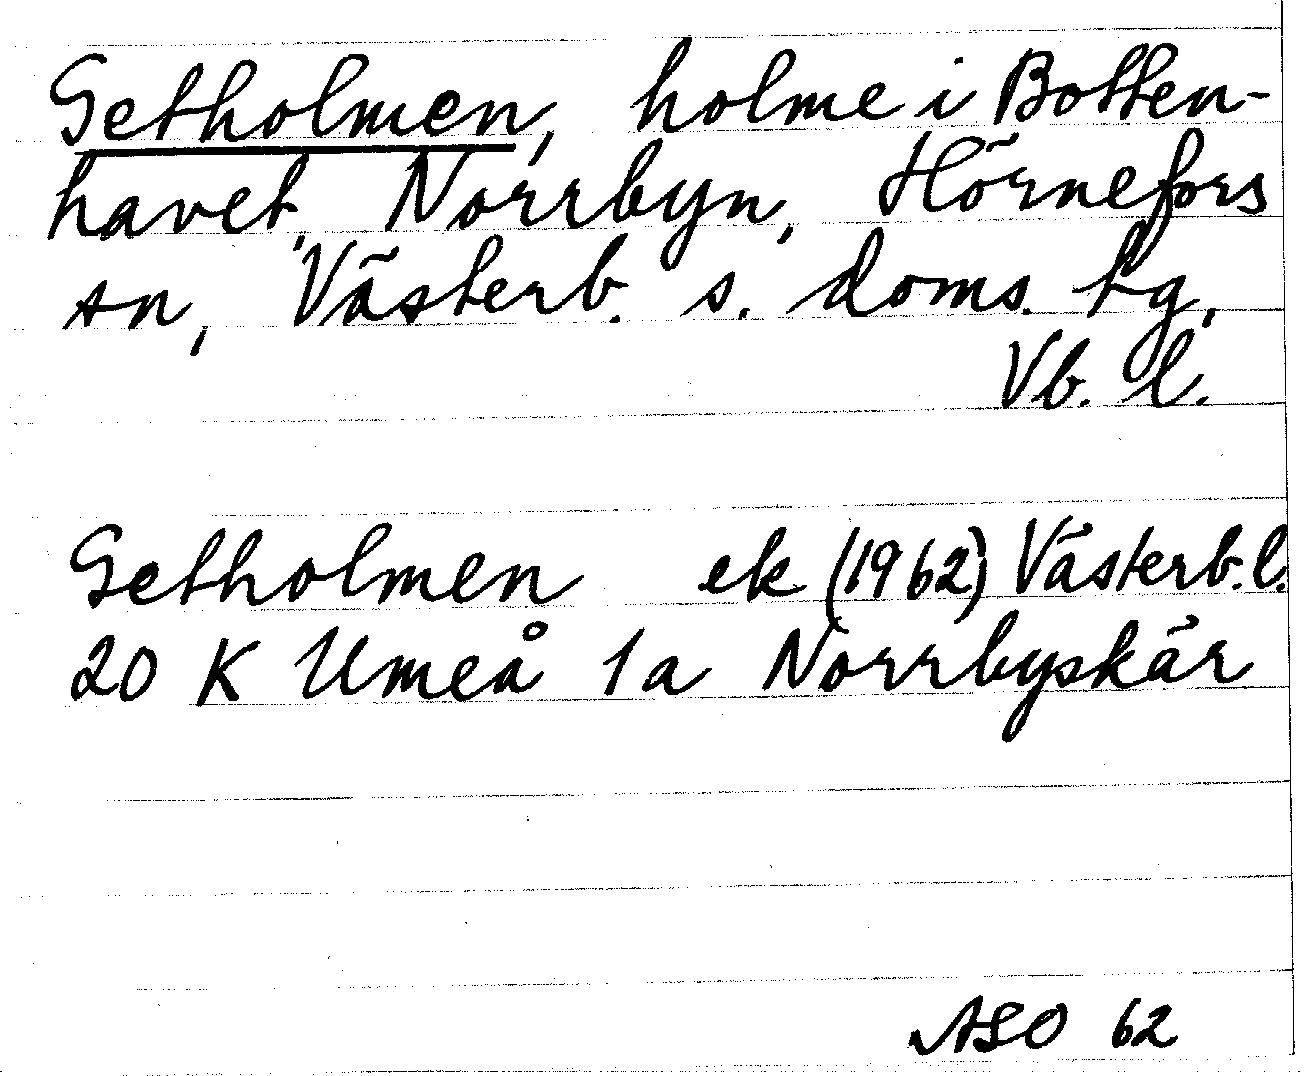 Getholmen, holme i Botten-
havet, Norrbyn, Hörnefors
sn, Västerb. s. doms. tg,
Vb. l.
Getholmen ek (1962) Västerb. l.
20 K Umeå 1a Norrbyskär
ASO 62